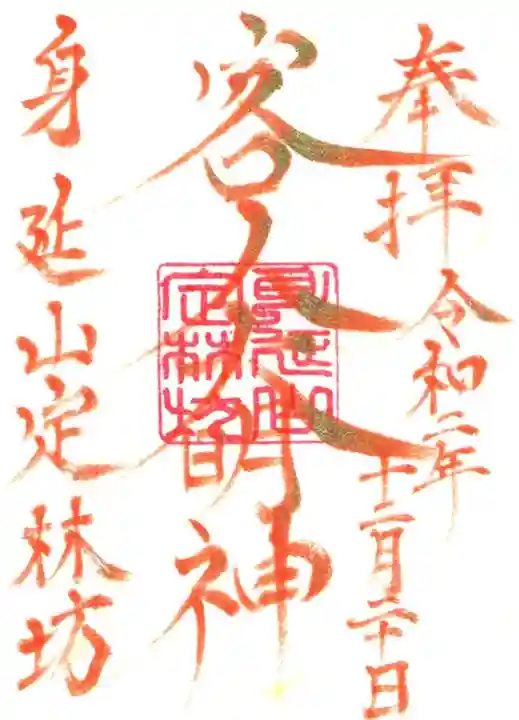 奉拝
令和二年
十二月二十日
客人大明神
身延山
定林坊
身延山定林坊